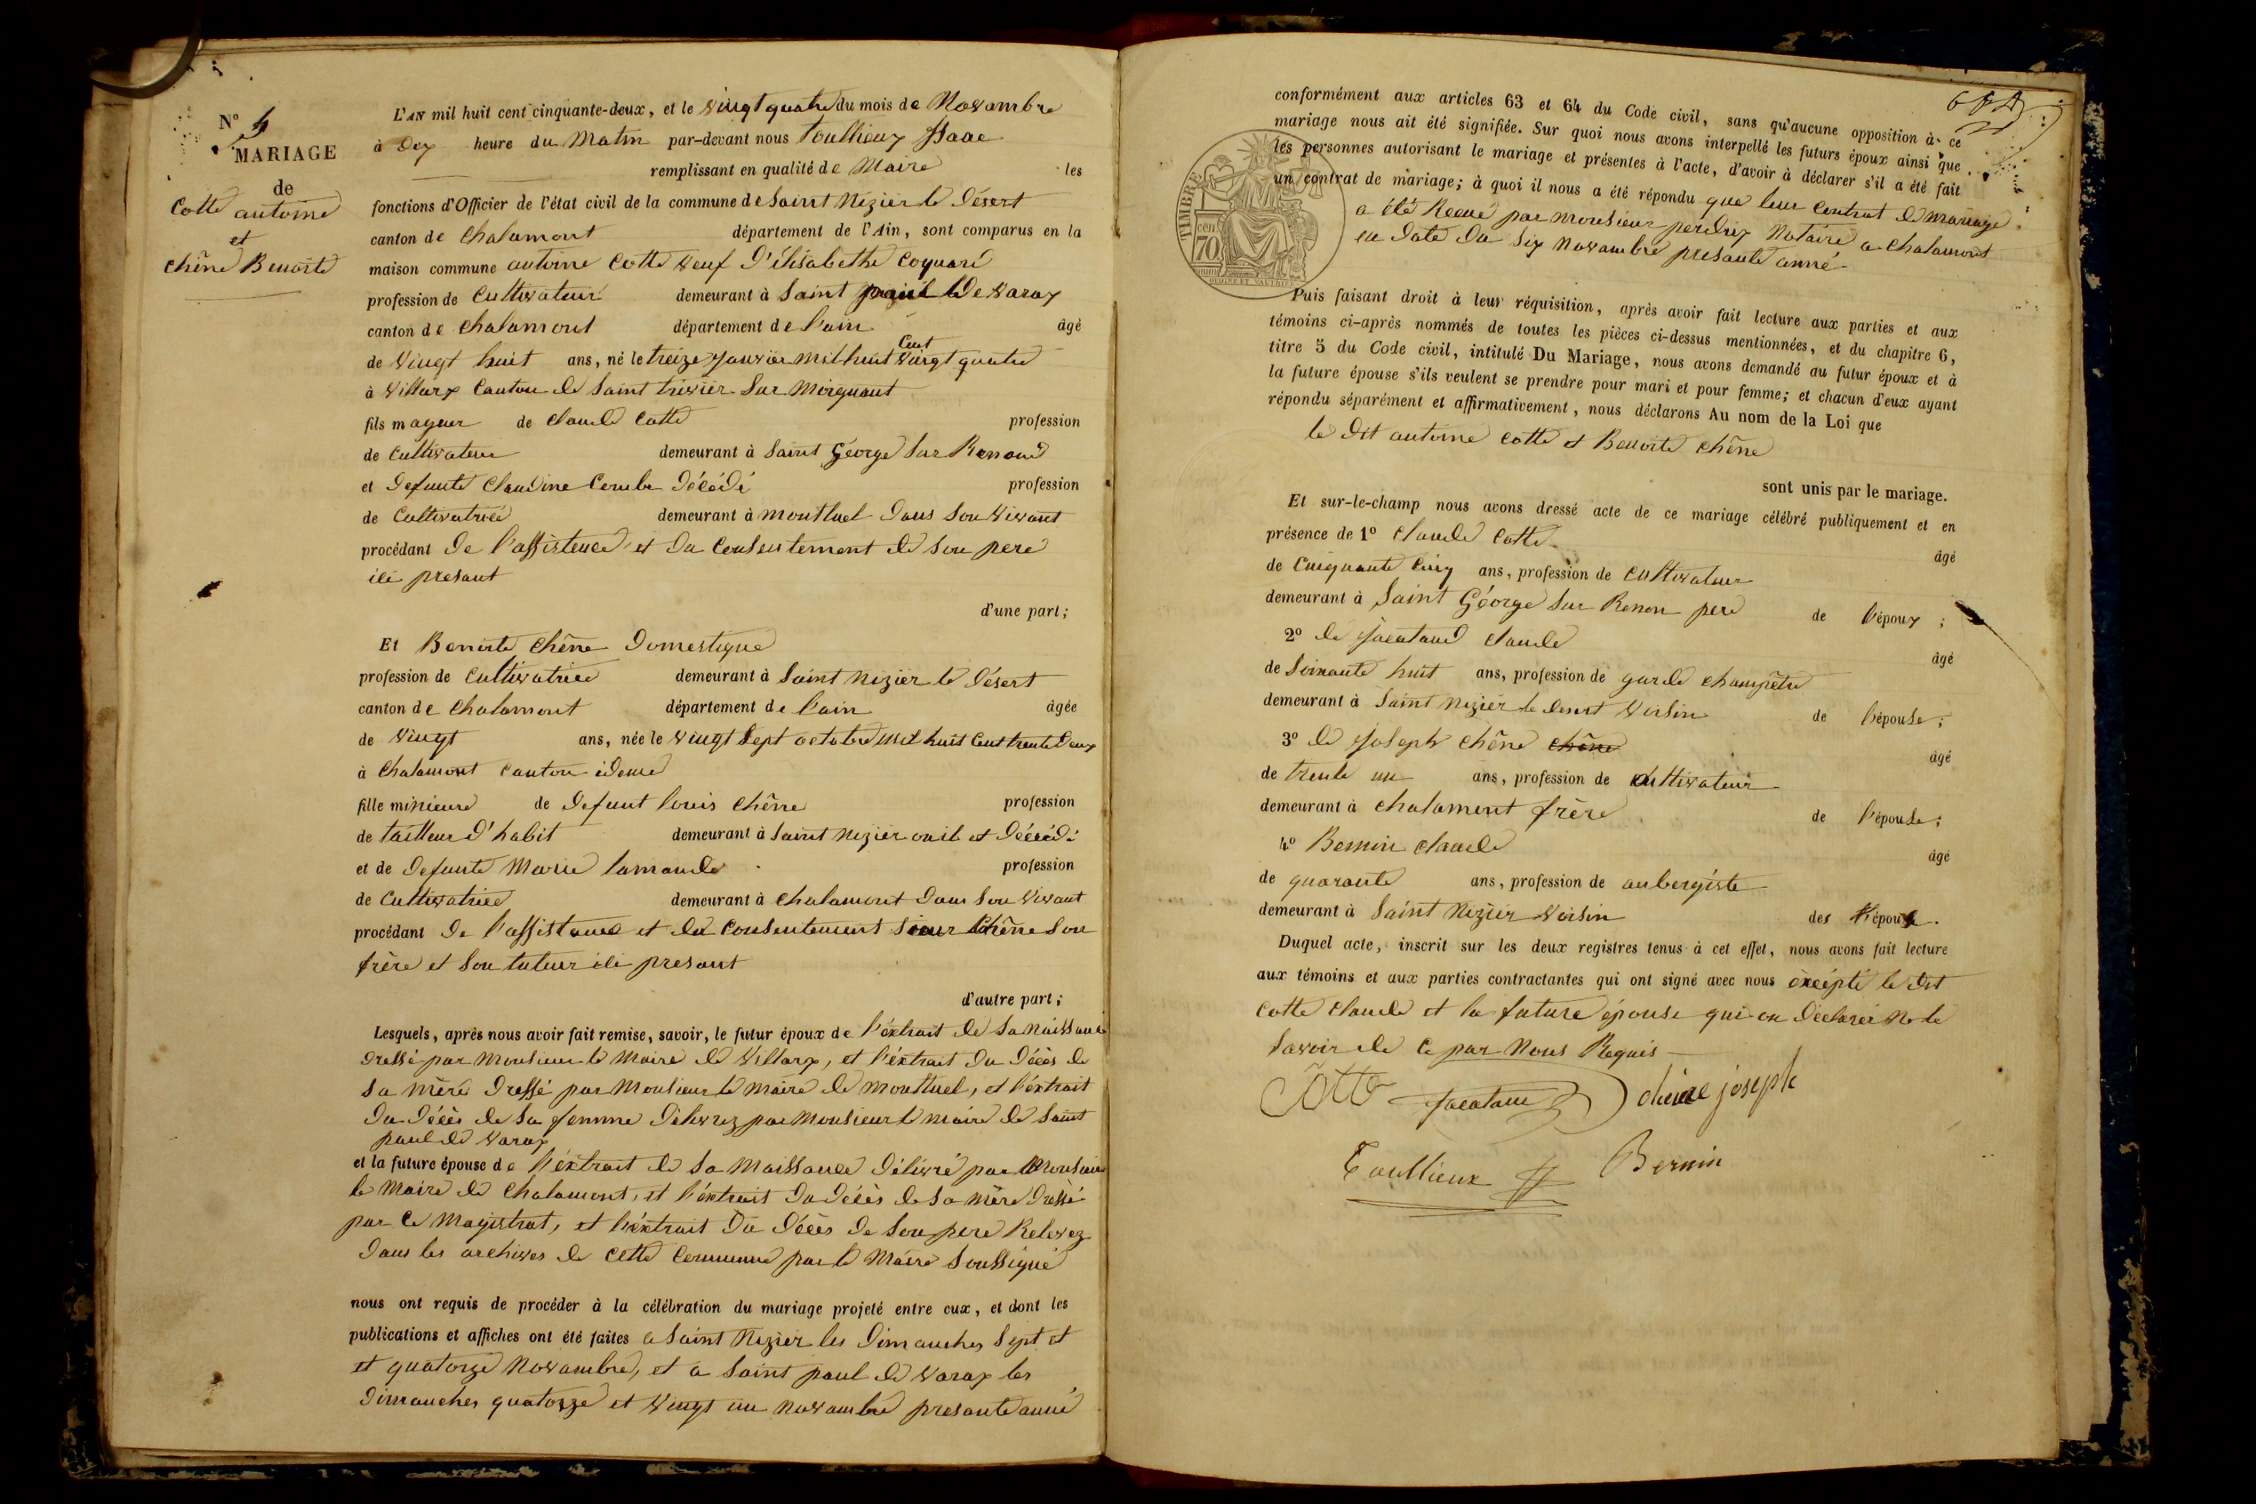 N° 4
MARIAGE
de
Cotte antoine
et
chêne Benoite
L'AN mil huit cent cinquante-deux, et le vingt quatre du mois de Novambre
à dix heure du Matin par-devant nous Toullieux Isaac
remplissant en qualité de Maire les
fonctions d'Officier de l'état civil de la commune de Saint Nizier le Désert
canton de Chalamont département de l'Ain, sont comparus en la
maison commune antoine Cotte veuf d'élisabethe Coquard
profession de Cultivateur demeurant à Saint paul de varax
canton de Chalamont département de l'ain âgé
de vingt huit ans, né le treize janvier mil huit Cent vingt quatre
à Villars Canton de Saint trivier Sur Moignant
fils mageur de Claude Cotte profession
de Cultivateur demeurant à Saint George Sur Renond
et defunte Claudine décédé profession
de Cultivatrice demeurant à montluel dans Son vivant
procédant de l'assistence et du Consentement de Son pere
ici présant
d'une part;
Et Benoite Chêne Domestique
profession de Cultivatrice demeurant à Saint Nizier le désert
canton de Chalamont département de l'ain âgée
de vingt ans, née le vingt Sept octobre mil huit Cent trente deux
à Chalamont Canton ideme
fille minieure de defunt louis Chêne profession
de tailleur d'habit demeurant à Saint Nizier ou il et décédé
et de defunte Marie lamande profession
de Cultivatrice demeurant à Chalamont dans Son vivant
procédant de l'assistance et du Consentement Sieur Chêne Son
frère et Son tuteur ici présant
d'autre part;
Lesquels, après nous avoir fait remise, savoir, le futur époux de l'éxtrait de Sa Naissance
dressé par Monsieur le Maire de Villars, et l'éxtrait du décès de
Sa mère dressé par Monsieur le maire de montluel, et l'éxtrait
du décès de Sa femme délivrez par Monsieur le maire de Saint
paul de varax
et la future épouse de l'éxtrait de Sa Naissance délivré par Monsieur
le Maire de Chalamont, et l'éxtrait du décès de Sa mère dressé
par Ce Magistrat, et l'éxtrait du décès de Son pere Relevez
dans les archives de cette Commune par le Maire Soussigné
nous ont requis de procéder à la célébration du mariage projeté entre eux, et dont les
publications et affiches ont été faites a Saint Nizier les dimanches Sept et
et quatorze Novambre, et a Saint paul de varax les
dimanches quatorze et vingt un novambre présante anné
conformément aux articles 63 et 64 du Code civil, sans qu'aucune opposition à ce
mariage nous ait été signifiée. Sur quoi nous avons interpellé les futurs époux ainsi que
les personnes autorisant le mariage et présentes à l'acte, d'avoir à déclarer s'il a été fait
un contrat de mariage; à quoi il nous a été répondu que leur Contrat de mariage
a été Recué par monsieur perdrix Notaire a Chalamont
en date du Six novambre présante anné
TIMBRE
70
Puis faisant droit à leur réquisition, après avoir fait lecture aux parties et aux
témoins ci-après nommés de toutes les pièces ci-dessus mentionnées, et du chapitre 6,
titre 5 du Code civil, intitulé Du Mariage, nous avons demandé au futur époux et à
la future épouse s'ils veulent se prendre pour mari et pour femme; et chacun d'eux ayant
répondu séparément et affirmativement, nous déclarons Au nom de la Loi que
le dit antoine Cotte et Benoite Chêne
sont unis par le mariage.
Et sur-le-champ nous avons dressé acte de ce mariage célébré publiquement et en
présence de 1° Claude Cotte âgé
de Cinquante Cinq ans, profession de Cultivateur
demeurant à Saint George Sur Renon pere de l'époux;
2° de Jacataud Claude âgé
de Soixante huit ans, profession de garde champêtre
demeurant à Saint Nizier le desert voisin de l'épouse;
3° de Joseph Chêne chêne âgé
de trente un ans, profession de Cultivateur
demeurant à Chalamont frère de l'épouse;
4° Bernin Claude âgé
de quarante ans, profession de aubergiste
demeurant à Saint Nizier voisin des époux.
Duquel acte, inscrit sur les deux registres tenus à cet effet, nous avons fait lecture
aux témoins et aux parties contractantes qui ont signé avec nous éxcépté le dit
Cotte Claude et la future épouse qui on déclarée ne le
Savoir de Ce par Nous Requis
Cotte Jacataud chêne joseph
Toullieux Bernin